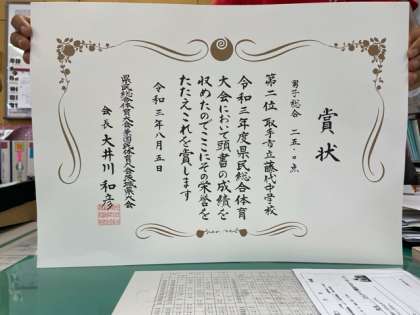 賞状
男子総合 二五〇点
第二位 取手市立藤代中学校
令和三年度県民総合体育
大会において頭書の成績を
収めたのでここにその栄誉を
たたえこれを賞します
令和三年八月五日
県民総合体育大会兼国民体育大会茨城県大会
会長 大井川 和彦